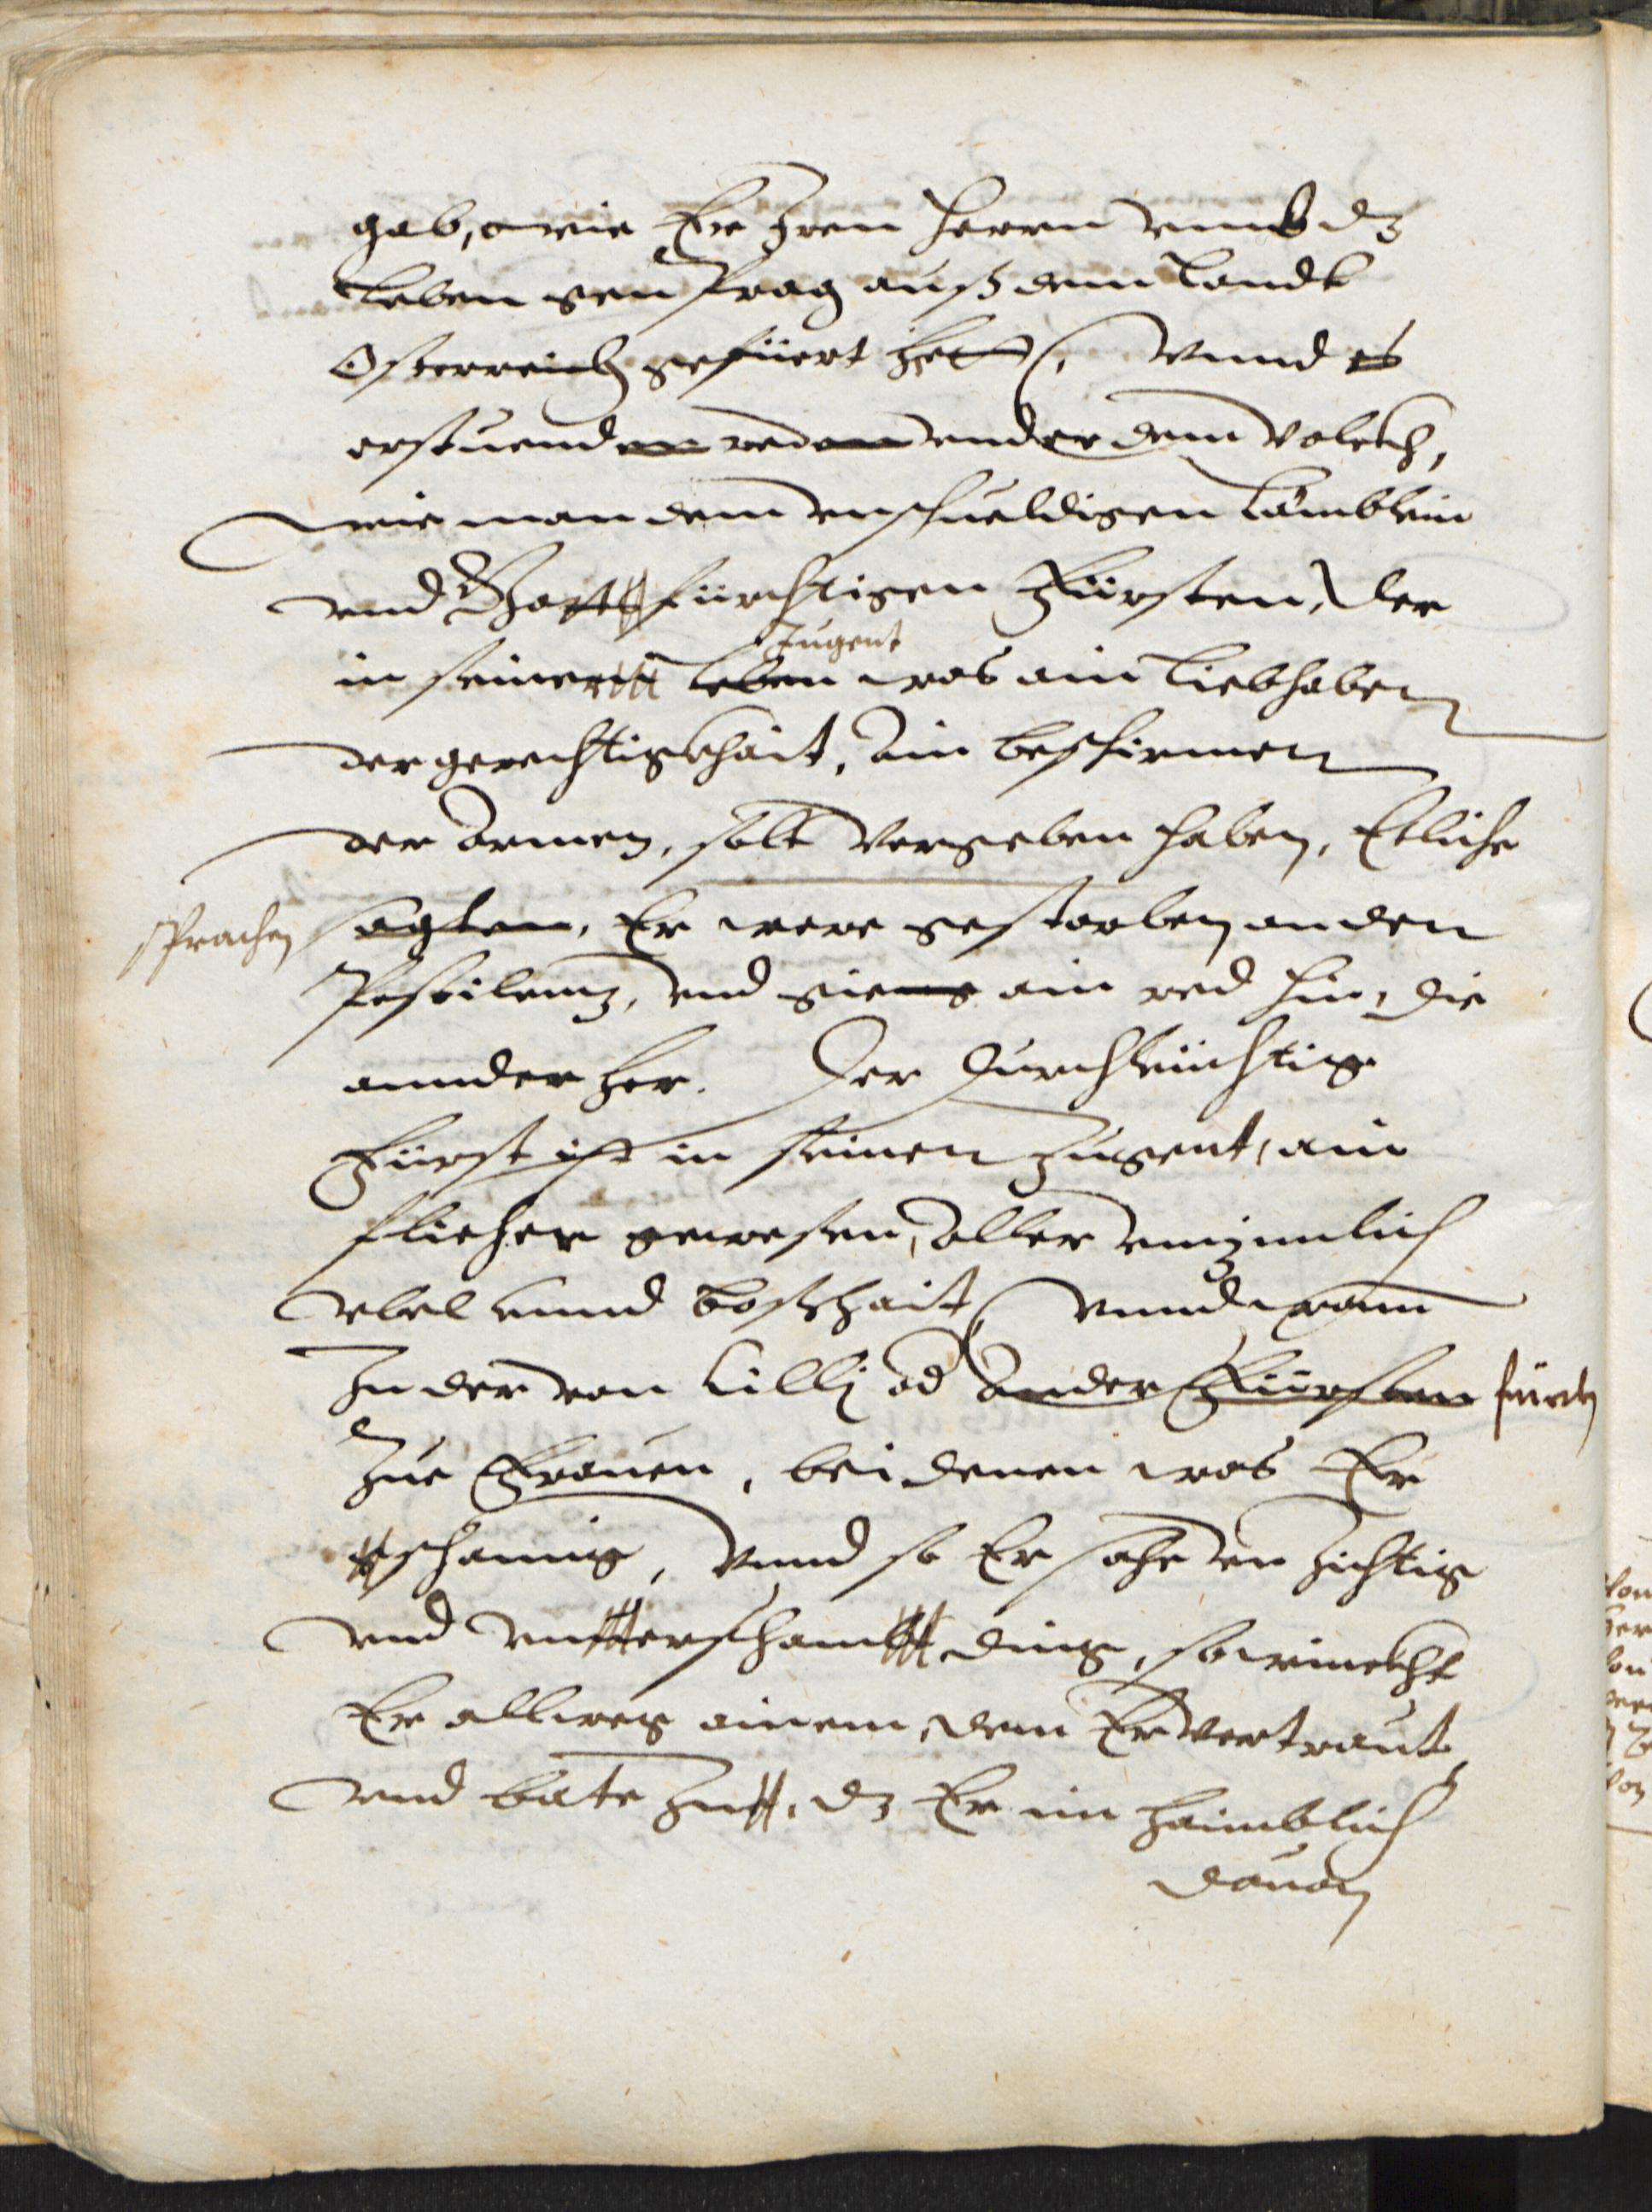 gab, wie Er Iren Herrn vmb dz
Leben gen Prag auß dem Landt
Osterreich gefüert het, Vnnd es
erstuenden reden vnder dem Volckh,
wie man dem vnschuldigen Lämblein
vnd Gottsfürchtigen Fürsten, der
Jugent
in seiner leben was ain Liebhaber
der gerechtigkhait, Ain beschirmer
der Armen, solt vergeben haben, Etliche
sprachen sagten, Er were gestorben an der
Pestilenz, vnd gieng ain red hin, die
annder her. Der Durchleuchtig
Fürst ist in seiner Jugent, ain
flieher gewesen, aller vnzimlich
vbel vnnd boßhait, Vnnd wann
In der von Cilli od ander Fürsten fürdt
Zue Frauen, bei denen was Er
schamig, Vnnd so Er sahe vnzichtig
vnd vnverschambt ding, so winckht
Er allweg ainem, dem Er vertraut,
vnd bate In, dz Er im haimblich
dauon